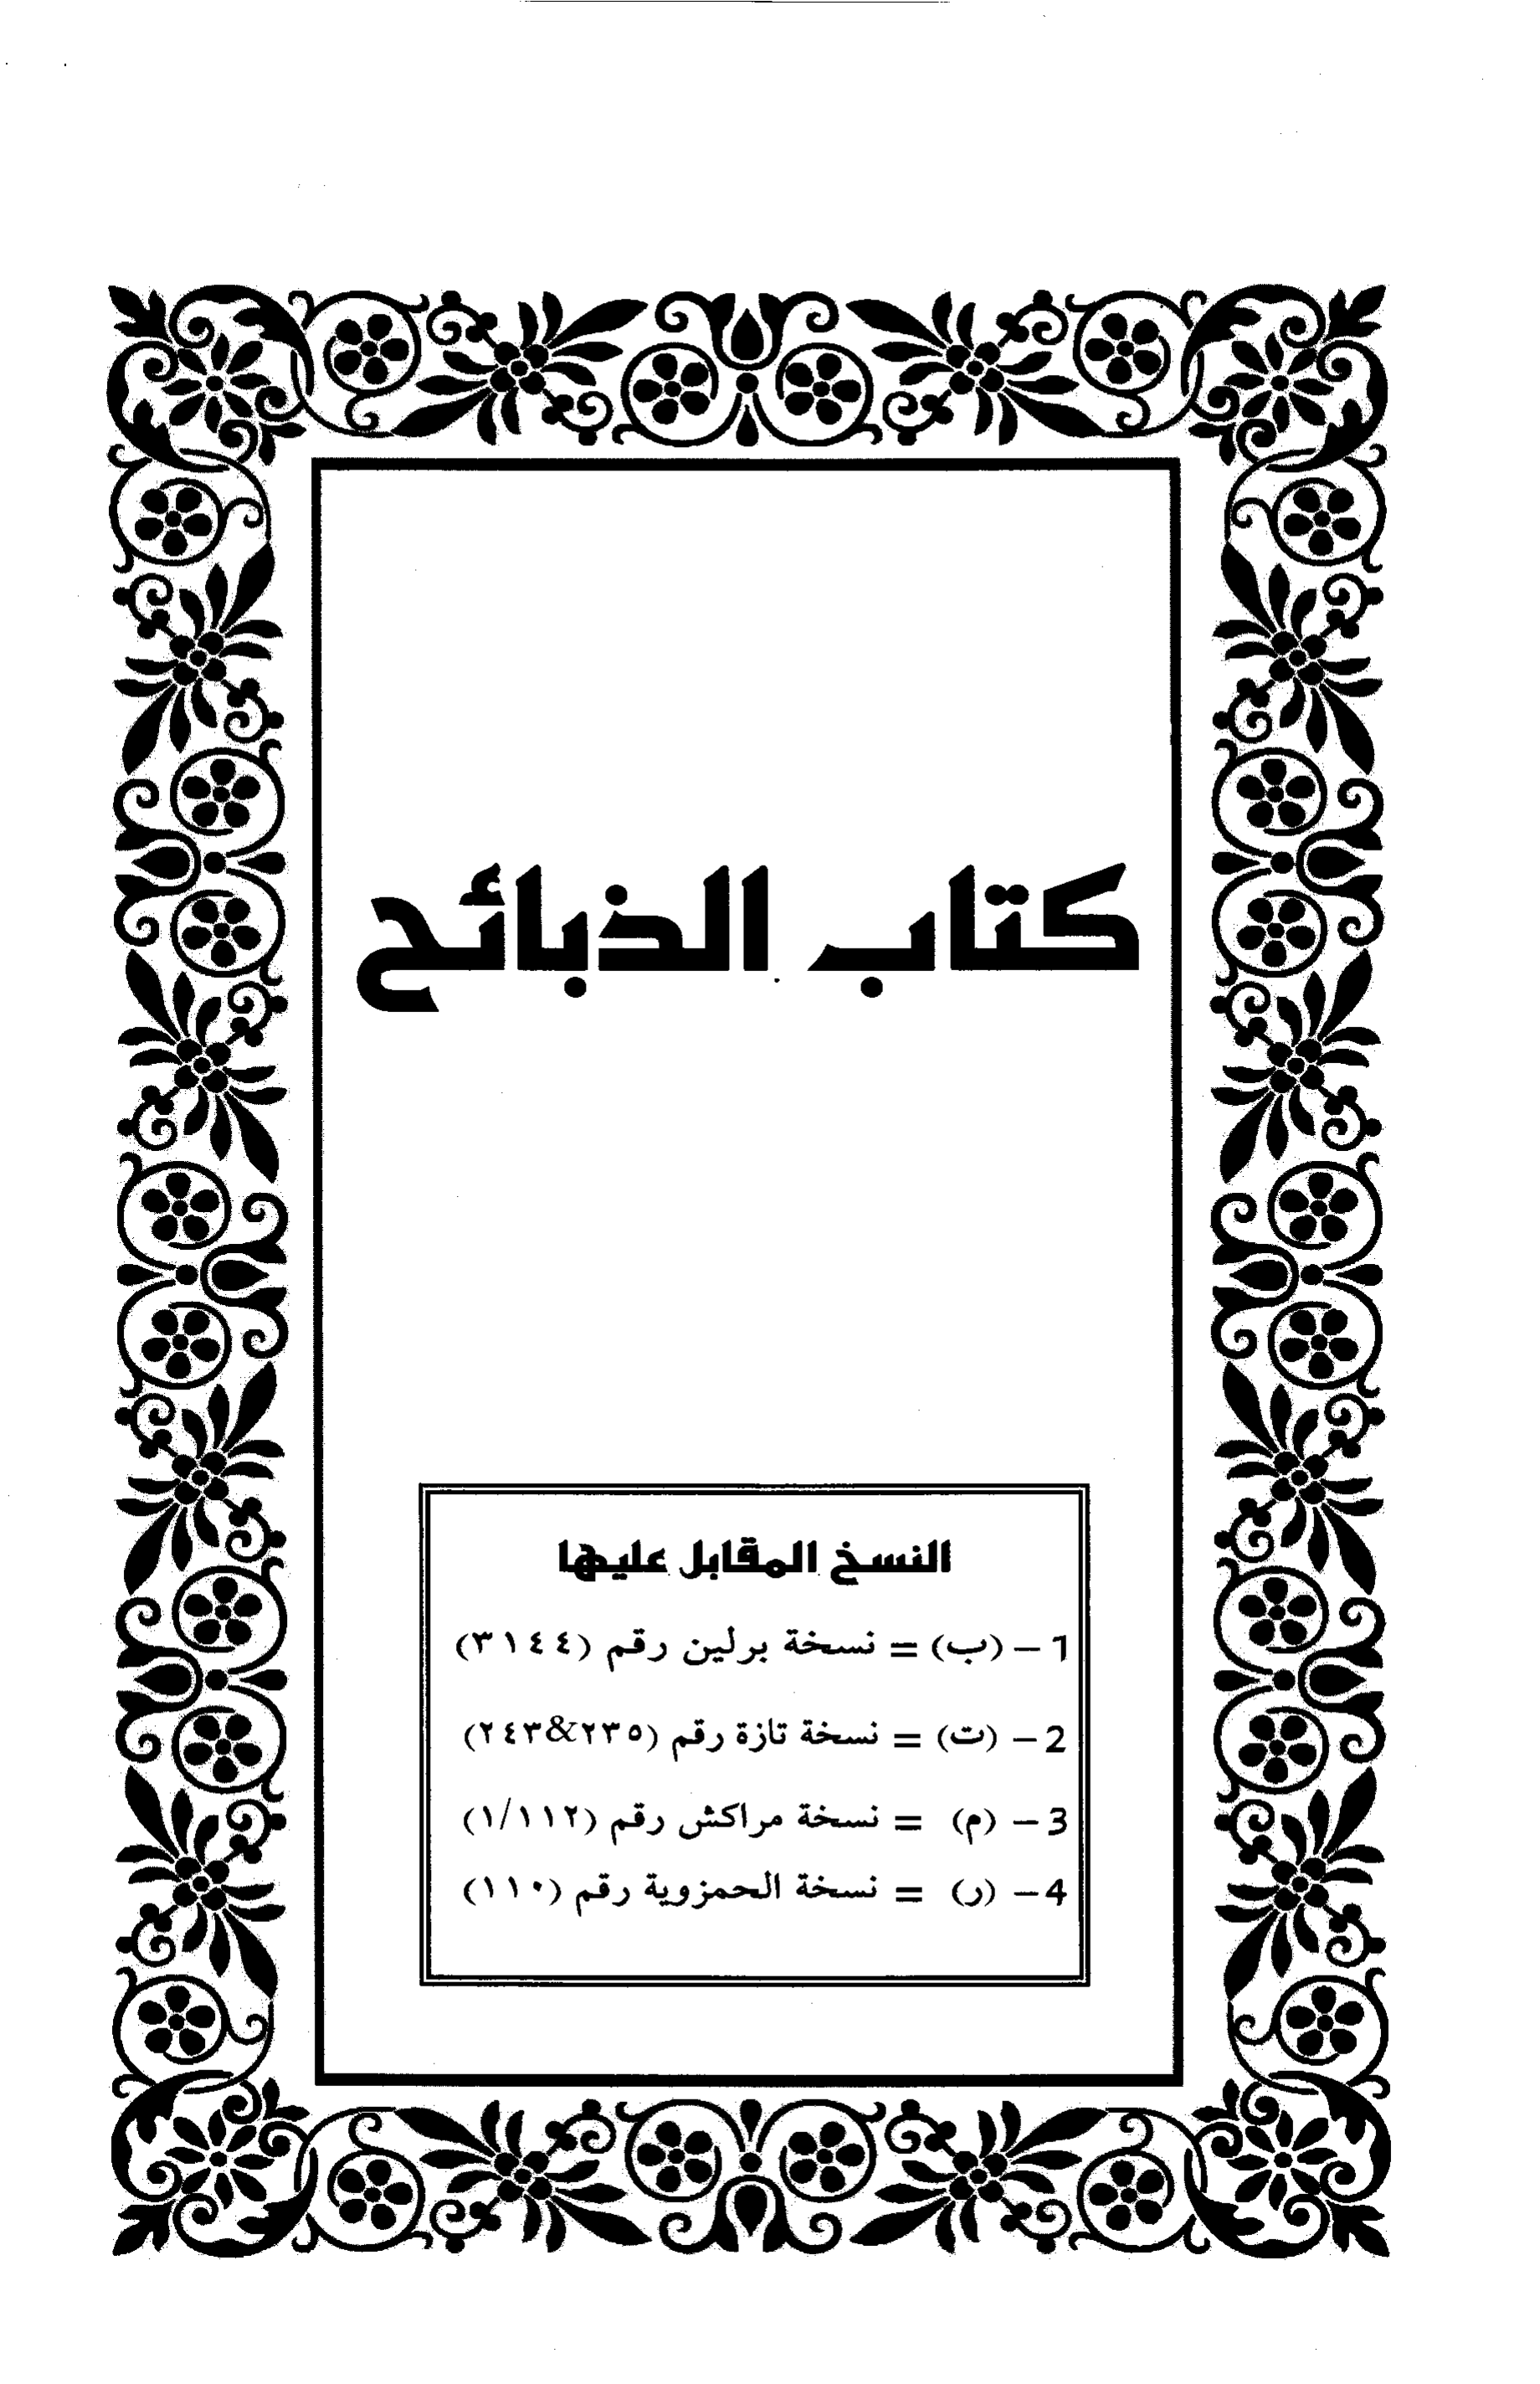 كتاب الذبائح
النسخ المقابل عليها
1 – (ب) = نسخة برلين رقم (٣١٤٤)
2 – (ت) = نسخة تازة رقم (٢٣٥&٢٤٣)
3 – (م) = نسخة مراكش رقم (١/١١٢)
4 – (ر) = نسخة الحمزوية رقم (١١٠)